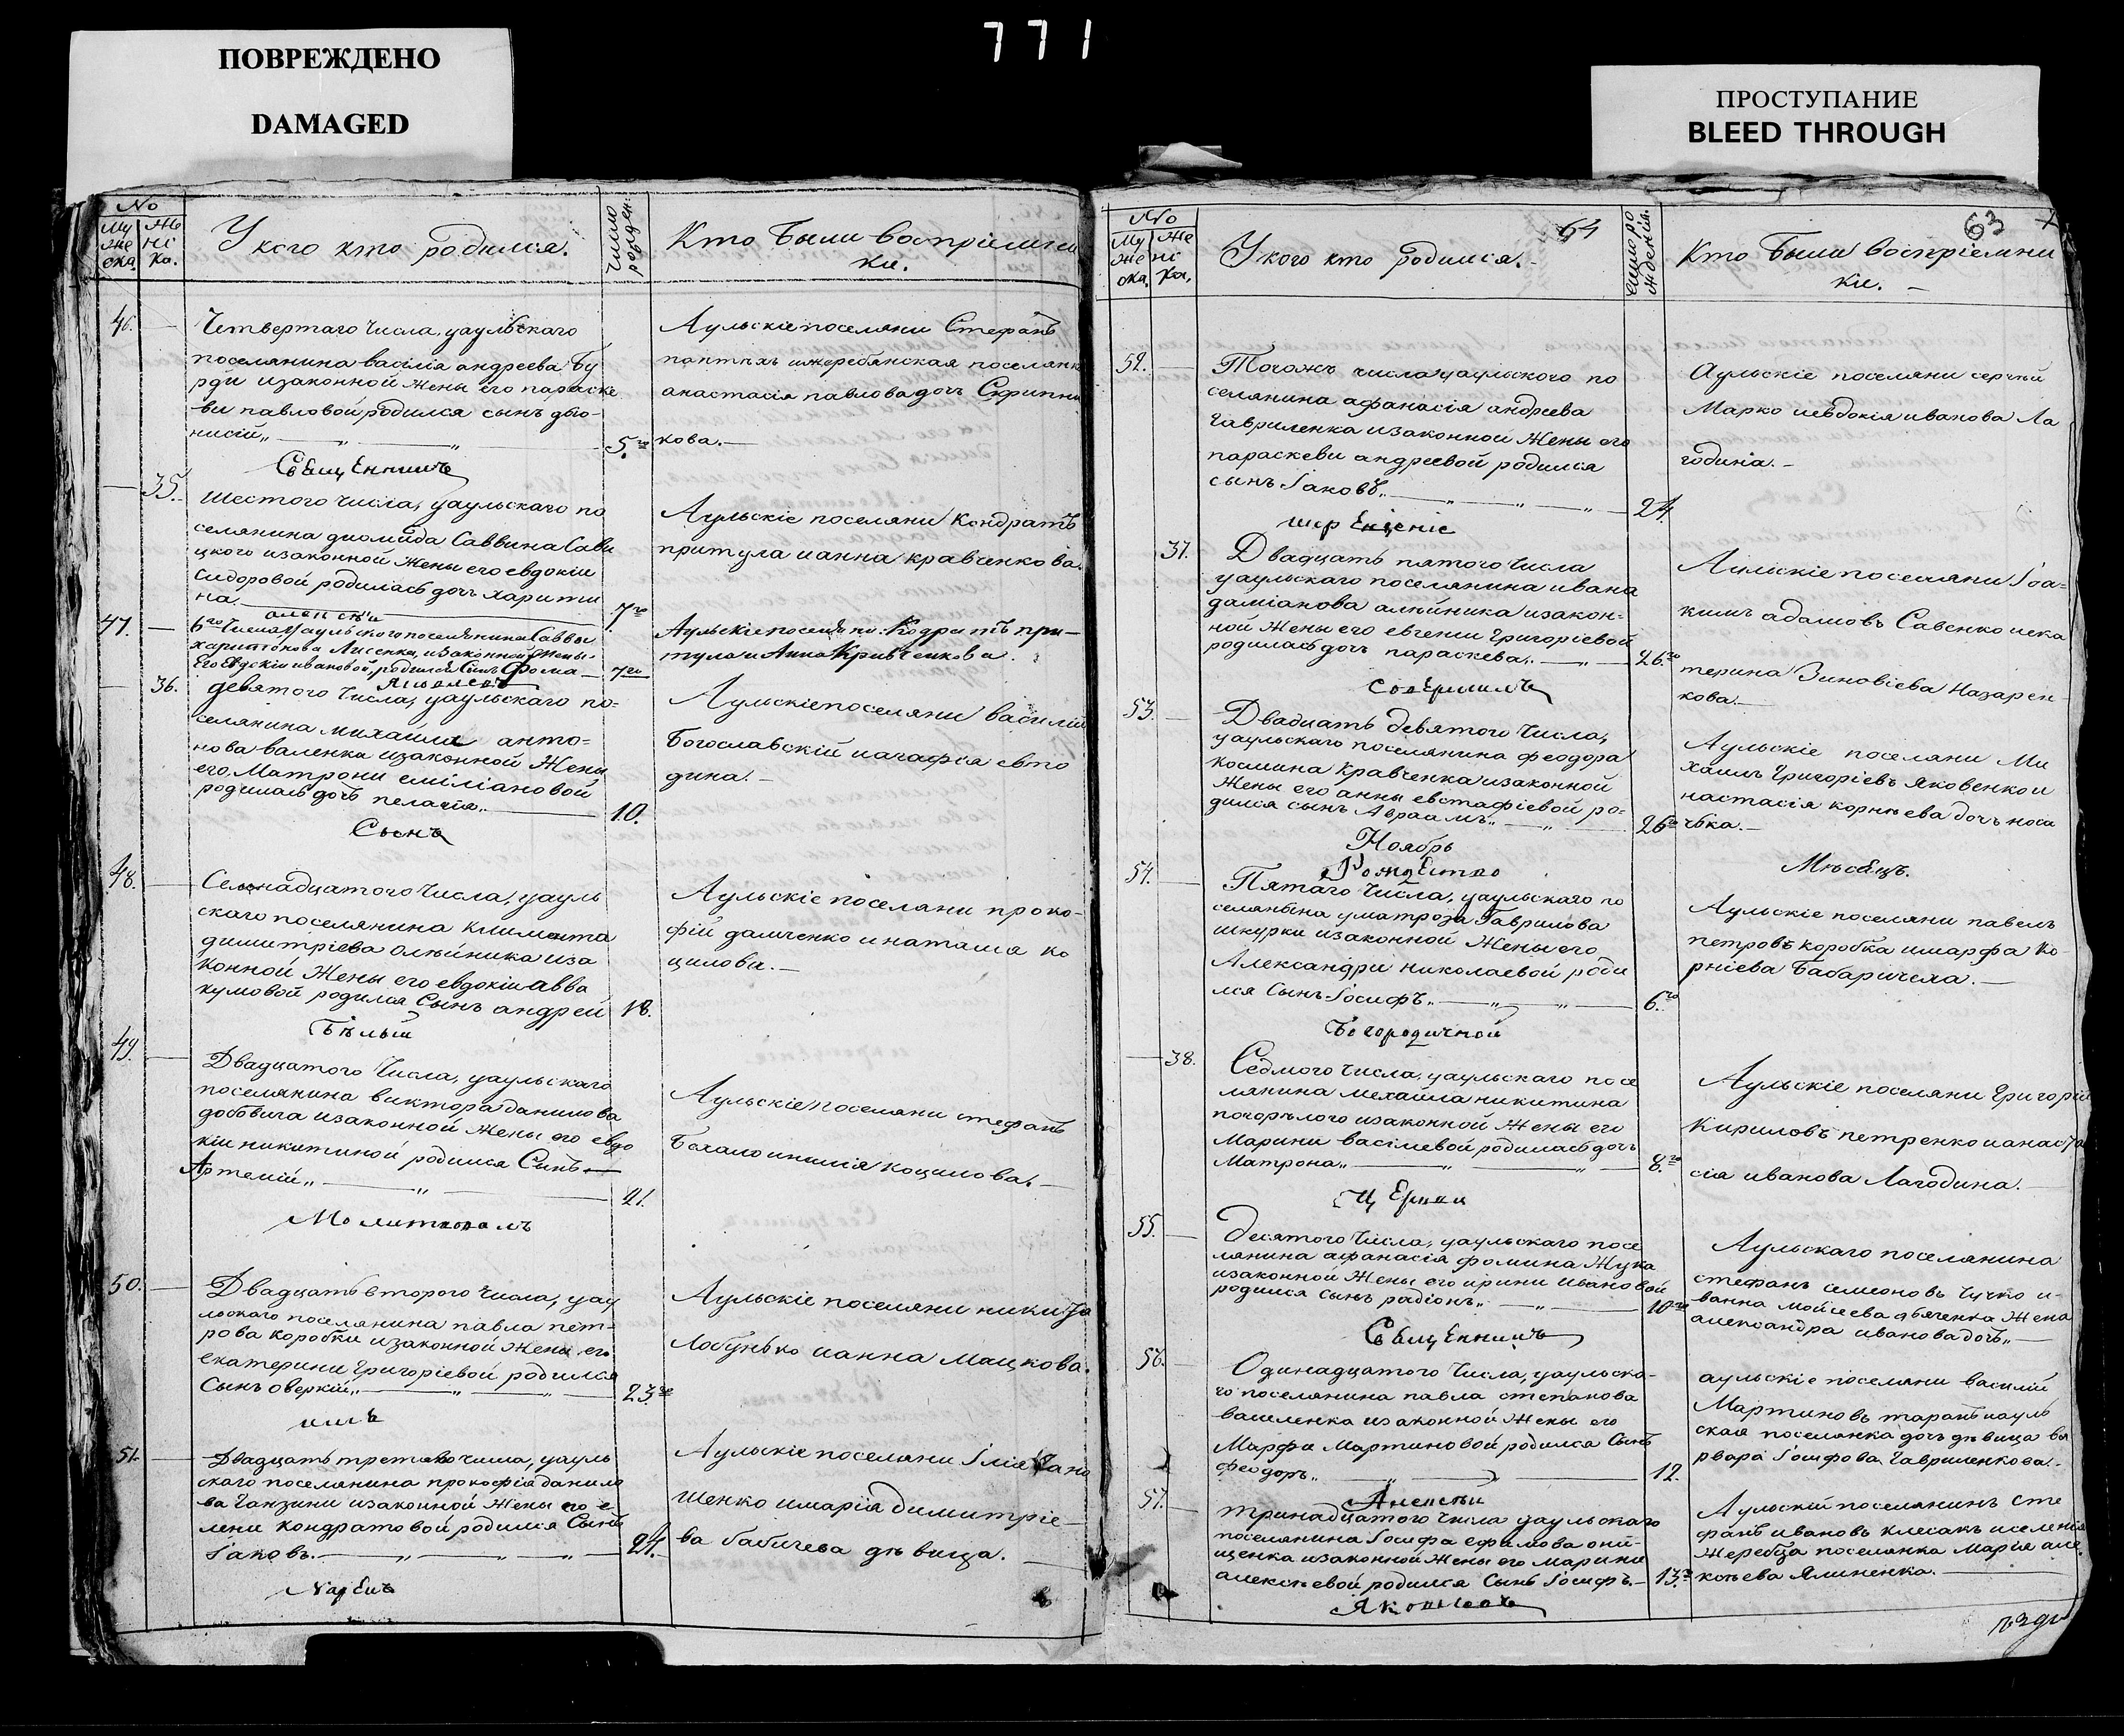 771
ПОВРЕЖДЕНО
DAMAGED
ПРОСТУПАНИЕ
BLEED THROUGH
No
Му же ска.
Же нс ка.
У кого кто родился.
Число рожден:
Кто были воспріемни
ки.
46.
Четвертаго числа, уаульскаго
поселянина василія андреева Бу
рди изаконной жены его параске
ви павловой родился сынъ дио-
нисій„
5.го
Аульскіе поселяни Стефанъ
жеребянская поселянк
анастасія павлова дочь Скрипни
кова.
Свящ Еникъ
35.
Шестого числа, уаульскаго по
селянина диомида Саввина Сави
цкого изаконной жены его евдокіи
Сидоровой родилась дочь харити
на.
7го
Аульскіе поселяни Кондратъ
притула ианна кравченкова.
алексѣй
47.
6го числа уаульского поселянина Саввы
харитонова Лисенка, изаконной жены
его Евдокіи ивановой, родился Сынъ Фома
7го
Аульскіе поселяни Кодратъ при-
тула и Анна Кравченкова.
Яковлевъ
36.
девятого числа, уаульскаго по=
селянина михаила анто=
нова валенка изаконной жены
его Матрони емиліановой
родилась дочь пелагія„
10.
Аульскіе поселяни василій
Богославскій иагафія евто
дина.
Сынъ
48.
Семнадцатого числа, уауль
скаго поселянина климента
димитріева олѣйника иза
конной жены его евдокіи авва
кумовой родился Сынъ андрей
18.
Аульскіе поселяни проко-
фій далченко инаталія ко
цилова.
Бѣлый
49.
Двадцатого числа, уаульскаго
поселянина виктора данилова
добвича изаконной жены его евдо
кіи никитиной родился Синъ
Артемій„
21.
Аульскіе поселяни стефанъ
коцилова.
Молитвовалъ
50.
Двадцать второго числа, уау
льскаго поселянина павла пет-
рова коробки изаконной жены его
екатерини григоріевой родился
Сынъ оверкій„
23го
Аульскіе поселяни никита
Лобунько ианна Мацкова.
имъ
51.
Двадцать третьего числа, уауль
скаго поселянина прокофія данило
ва ганзини изаконной жены его е-
лени кондратовой родился Сынъ
Іаковъ.
24.
Аульскіе поселяни Ілія
шенко имарія димитріе-
ва бабичева дѣвица.
Нарекъ
No
Му же ска.
Же нс ка.
У кого кто родился.
64
Число ро жденія.
Кто были воспріемни
ки.
63
52.
Тогожъ числа уаульского по
селянина афанасія андреева
гавриленка изаконной жены его
параскеви андреевой родился
сынъ Іаковъ„
24.
Аульскіе поселяни сергѣй
Марко иевдокія иванова Ла
година.
икр Ещеніе
37.
Двадцать пятого числа
уаульскаго поселянина ивана
даміанова олѣйника изакон-
ной жены его евгении григоріевой
родилась дочь параскева„
26.го
Аульскіе поселяни Іоа=
кимъ адамовъ Савенко иека
терина Зиновіева Назарен-
кова.
совЕршилъ
53.
Двадцать девятого числа,
уаульскаго поселянина феодора
космина кравченка изаконной
жены его анны евстафіевой ро=
дился сынъ Авраамъ„
26го
Аульскіе поселяни Ми
хаилъ григоріевъ Яковенко и
настасія корнѣева дочь носа
човка.
Ноябрь
Мѣсяцъ.
РождЕство
54.
Пятаго числа, уаульскаго по
селянина уматроза Гаврилова
шкурки изаконной жены его
Александри николаевой роди
лся Сынъ Іосифъ„
6.го
Аульскіе поселяни павелъ
петровъ коробка имарфа ко
рніева Бабаричева.
Богородичной
38.
Седмого числа, уаульскаго посе
лянина михаила никитина
погорѣлого изаконной жены его
Марини василевой родилась дочь
Матрона„
8.го
Аульскіе поселяни григорій
Кириловъ петренко ианаста
сія иванова Лагодина.
ц Еркви
55.
десятого числа, уаульскаго посе
лянина афанасія фомина Жука
изаконной жены его ирини ивановой
родился сынъ радіонъ„
10го
Аульскаго поселянина
стефанъ семеоновъ чучко и-
ванна мойсеева дяченка жена
александра иванова дочь„
Свящ Енникъ
56.
Одинадцатого числа, уаульска-
го поселянина павла степанова
василенка изаконной жены его
Марфи Мартиновой родился Сынъ
феодоръ„
12.
аульскіе поселяни василій
Мартиновъ таранъ иауль
ская поселянка дочь дѣвица ва
рвара Іосифова гавриленкова.
Алексѣй
57.
тринадцатого числа уаульскаго
поселянина Іосифа ефимова они-
щенка изаконной жены его марини
алексѣевой родился Сынъ Іосифъ.
13.го
Аульскій поселянинъ сте
фанъ ивановъ клесакъ иселенія
жеребца поселянка Марія але
ксѣева Ялиненка.
Яковлевъ